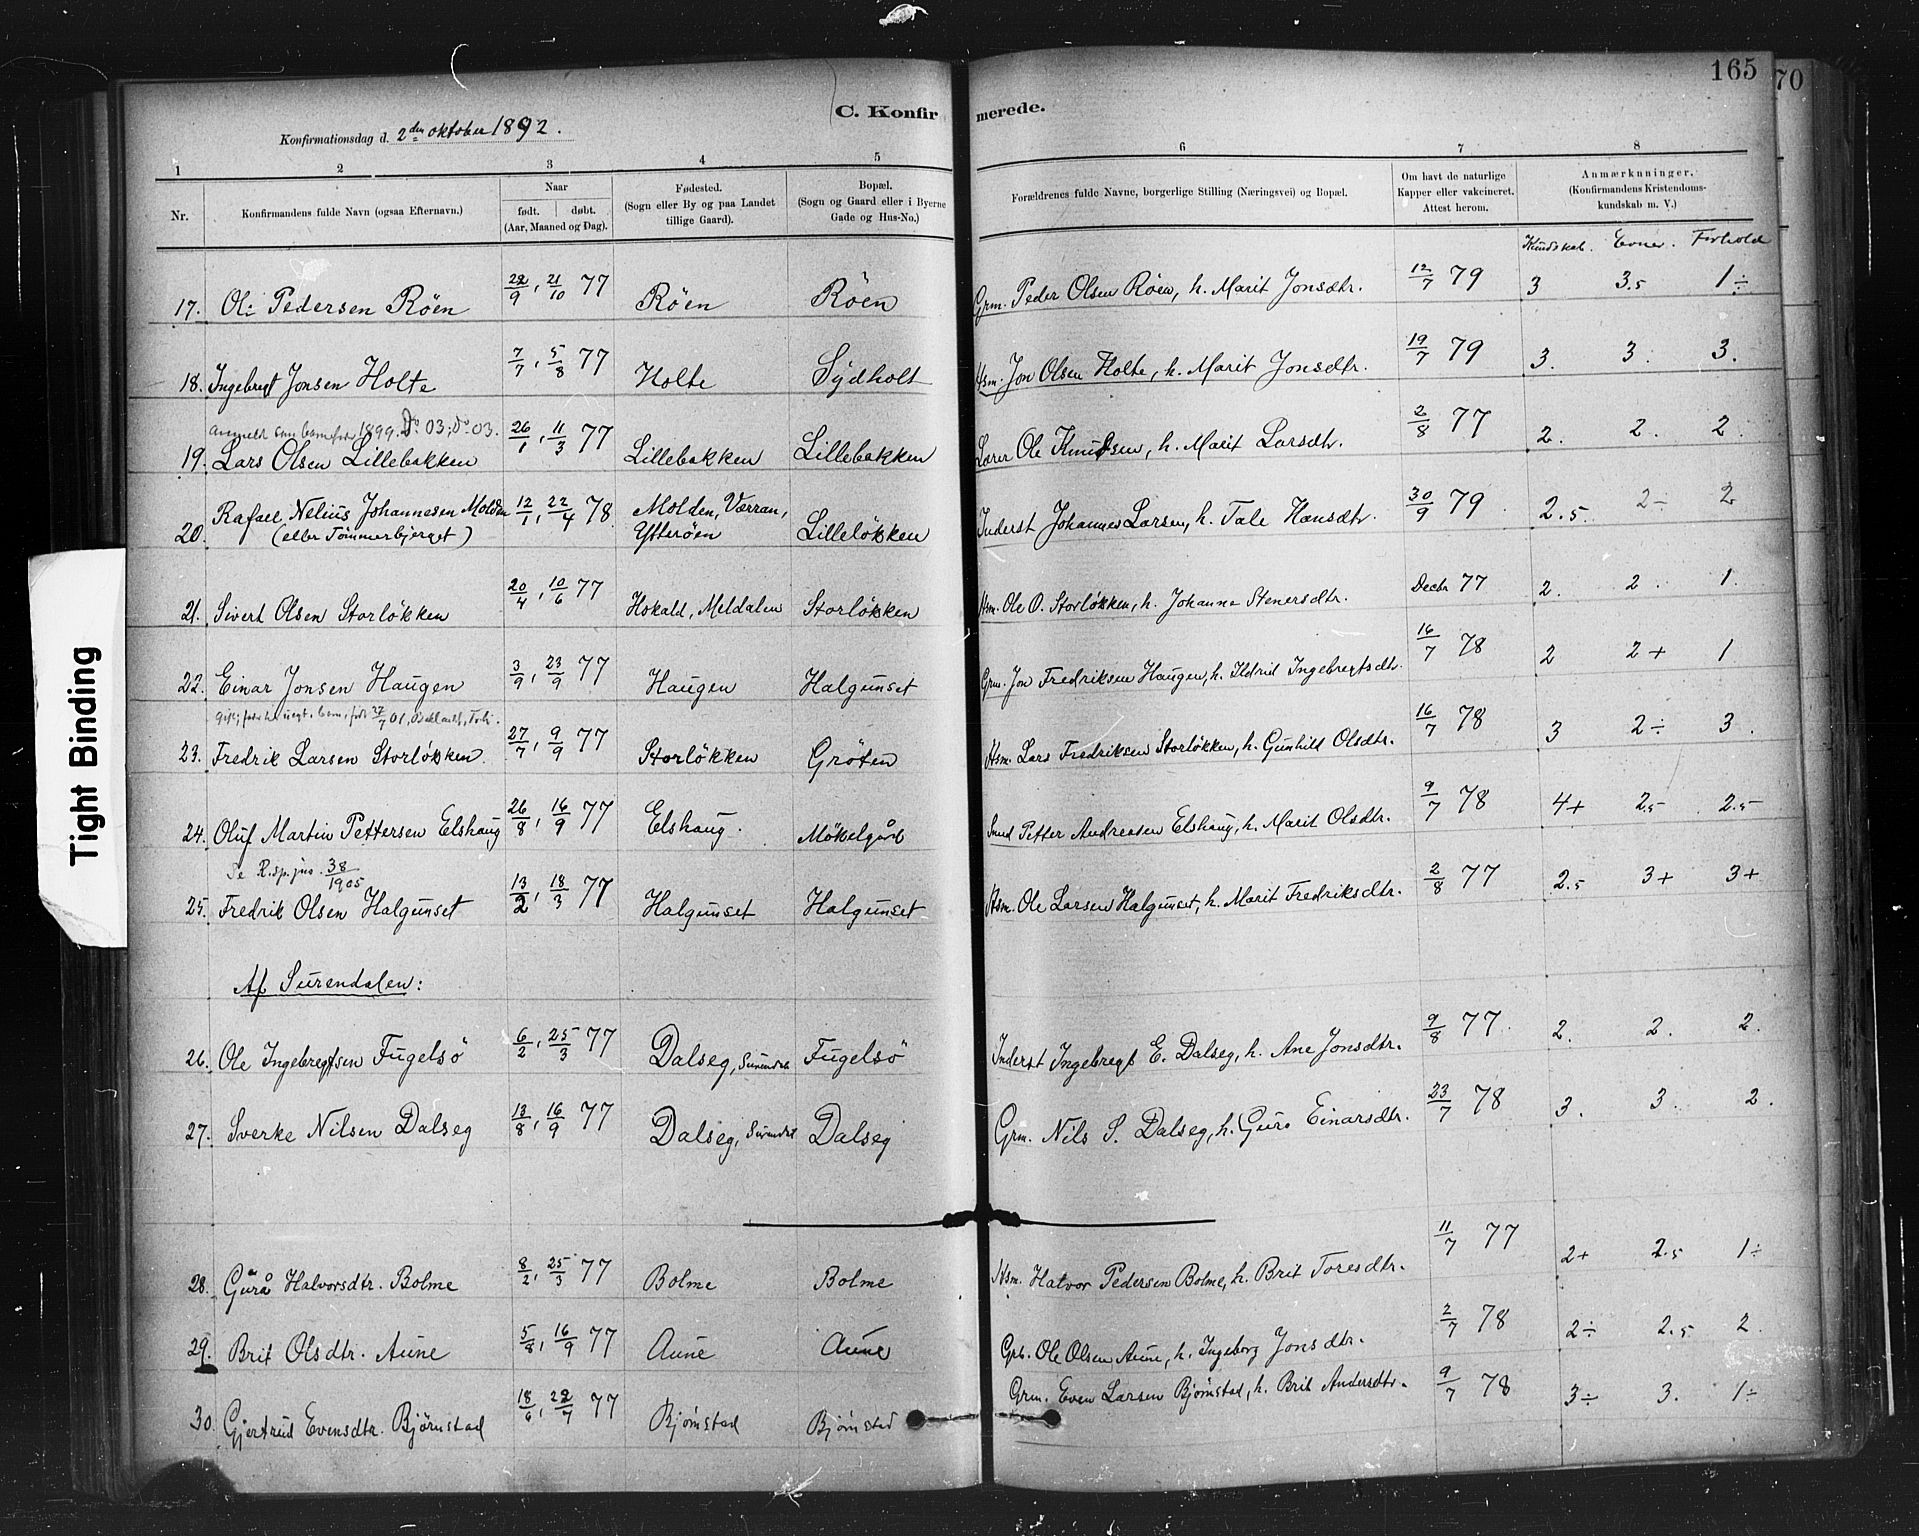 165
70
C. Konfirmerede.
Konfirmationsdag d. 2den oktober 1892.
1 2 3 4 5 6 7 8
Nr. Konfirmandens fulde Navn (ogsaa Efternavn). Naar født. døbt. (Aar, Maaned og Dag). Fødested. (Sogn eller By og paa Landet tillige Gaard). Bopæl. (Sogn og Gaard eller i Byerne Gade og Hus-No.) Forældrenes fulde Navne, borgerlige Stilling (Næringsvei) og Bopæl. Om havt de naturlige Kapper eller vakcineret. Attest herom. Anmærkninger. (Konfirmandens Kristendomskundskab m. V.)
Kundskab. Evner. Forhold
17. Ole Pedersen Röen 22/9, 21/10 77 Röen Röen Grm. Peder Olsen Röen, h. Marit Jonsdtr. 12/7 79 3 3.5 1÷
18. Ingebregt Jonsen Holte 7/7, 5/8 77 Holte Sydholt Hsm. Jon Olsen Holte, h. Marit Jonsdtr. 19/7 79 3. 3. 3.
1899. Do 03; Do 03.
19. Lars Olsen Lillebakken 26/1, 11/3 77 Lillebakken Lillebakken Lærer Ole Knudsen, h. Marit Larsdtr. 2/8 77 2. 2. 2.
20. Rafael Nelius Johannesen Molden 12/1, 22/4 78 Molden, Værran, Lilleløkken Inderst Johannes Larsen, h. Tale Hansdtr. 30/9 79 2.5 2÷ 2
(eller Tömmerbjerget) Ytterøen
21. Sivert Olsen Storløkken 20/4, 10/6 77 Hokald, Meldalen Storløkken Hsm. Ole O. Storløkken, h. Johanna Stenersdtr. Decbr 77 2. 2. 1.
22. Einar Jonsen Haugen 3/9, 23/9 77 Haugen Halgunset Grm. Jon Fredriksen Haugen, h. Ildrid Ingebregtsdtr. 16/7 78 2 2+ 1
23. Fredrik Larsen Storløkken. 27/7, 9/9 77 Storløkken Gröten Hsm. Lars Fredriksen Storløkken, h. Gunhild Olsdtr. 16/7 78 3 2÷ 3.
24. Oluf Martin Pettersen Elshaug 26/8, 16/9 77 Elshaug. Møkelgård Smed Petter Andreasen Elshaug, h. Marit Olsdtr. 9/7 78 4+ 2.5 2.5
Se R.sp.jno. 38/1905
25. Fredrik Olsen Halgunset 13/2, 18/3 77 Halgunset Halgunset Hsm. Ole Larsen Halgunset, h. Marit Fredriksdtr. 2/8 77 2.5 3+ 3+
Af Surendalen:
26. Ole Ingebregtsen Fugelsö 6/2, 25/3 77 Dalseg, Surendal Fugelsö Inderst Ingebregt E. Dalseg, h. Ane Jonsdtr. 9/8 77. 2. 2. 2.
27. Sverke Nilsen Dalseg 13/8, 16/9 77 Dalseg, Surendal Dalseg Grm. Nils S. Dalseg, h. Guro Einarsdtr. 23/7 78 3. 3. 2.
28. Gurå Halvorsdtr. Bolme 8/2, 25/3 77 Bolme Bolme Hsm. Halvor Pedersen Bolme, h. Brit Toresdtr. 11/7 77 2+ 2.5 1÷
29. Brit Olsdtr. Aune 5/8, 16/9 77 Aune Aune Grb. Ole Olsen Aune, h. Ingeborg Jonsdtr. 2/7 78 2÷ 2.5 2.
30. Gjertrud Evensdtr. Bjørnstad 18/6, 22/7 77 Bjørnstad Bjørnstad Grm. Even Larsen Bjørnstad, h. Brit Andersdtr. 9/7 78 3÷ 3. 1÷
Tight Binding